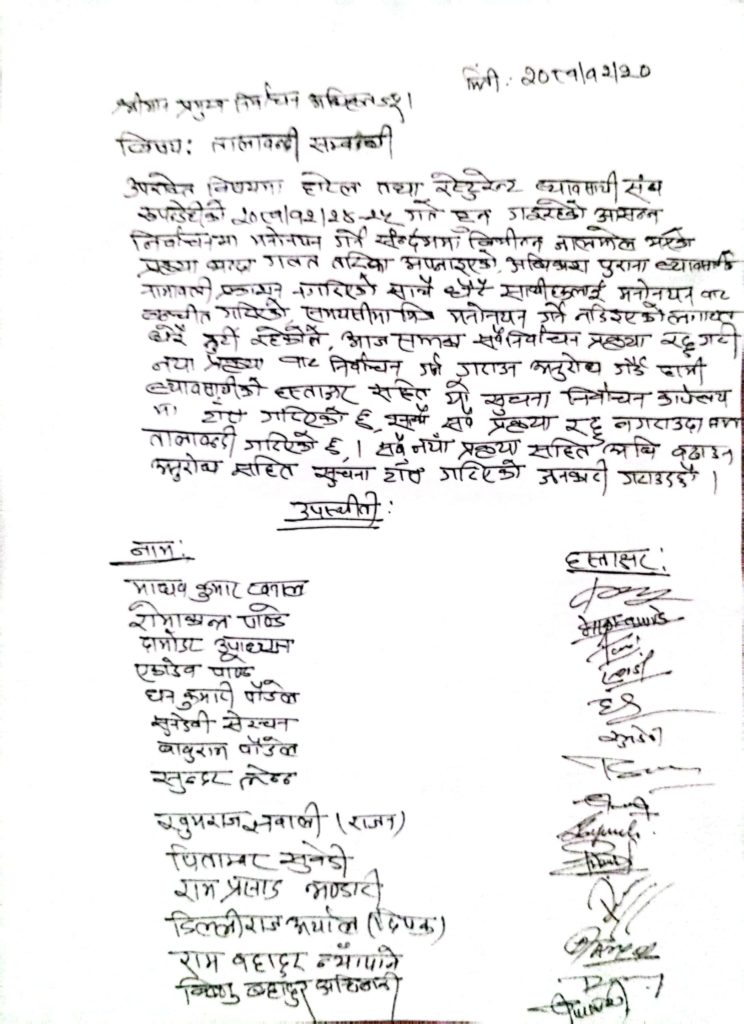 मिती: २०८१/१२/२०
श्रीमान प्रमुख निर्वाचन अधिकृत ज्यू।
विषय: तालाबन्दी सम्बन्धी
उपरोक्त विषयमा होटेल तथा रेष्टुरेन्ट ब्यावसायी संघ
रुपन्देहीको २०८१/१२/२४-२५ गते हुन गईरहेको आसन्न
निर्वाचनमा मनोनयन गर्ने सन्दर्भमा
प्रक्रया भन्दा गलत तरिका अपनाइएको, अधिकांश पुराना ब्यावसायी
नामावली प्रकाशन नगरिएको साथै धेरै साथीहरुलाई मनोनयन बाट
बञ्चीत गरिएको, समयसीमा भित्र मनोनयन गर्न नदिइएको लगायत
धेरै त्रुटी रहेकोले, आज सम्मका सबै निर्वाचन प्रक्रया रद्द गरी
नया प्रक्रया बाट निर्वाचन गर्न गराउन अनुरोध गर्दै हामी
ब्यावसायीको हस्ताक्षर सहित यो सुचना निर्वाचन कार्यलय
मा टाँस गरिएको छ, साथै सबै प्रक्रया रद्द नगराउदा सम्म
तालाबन्दी गरिएको छ,। सबै नयाँ प्रक्रया सहित अघि बढाउन
अनुरोध सहित सुचना टाँस गरिएको जानकारी गराउदछौ।
उपस्थीती:
नाम: हस्ताक्षर:
माधव कुमार
रोमाकान्त पाण्डे
दामोदर उपाध्याय
एकदेव पाण्डे
धन कुमारी पौडेल
सुनदेवी सेरचन
बाबुराम पौडेल
सुन्दर
खुमराज ज्ञवाली (राजन)
पिताम्बर सुवेदी
राम प्रसाद भण्डारी
डिल्लीराज अर्याल (दिपक)
राम बहादुर न्यौपाने
बिष्णु बहादुर अधिकारी